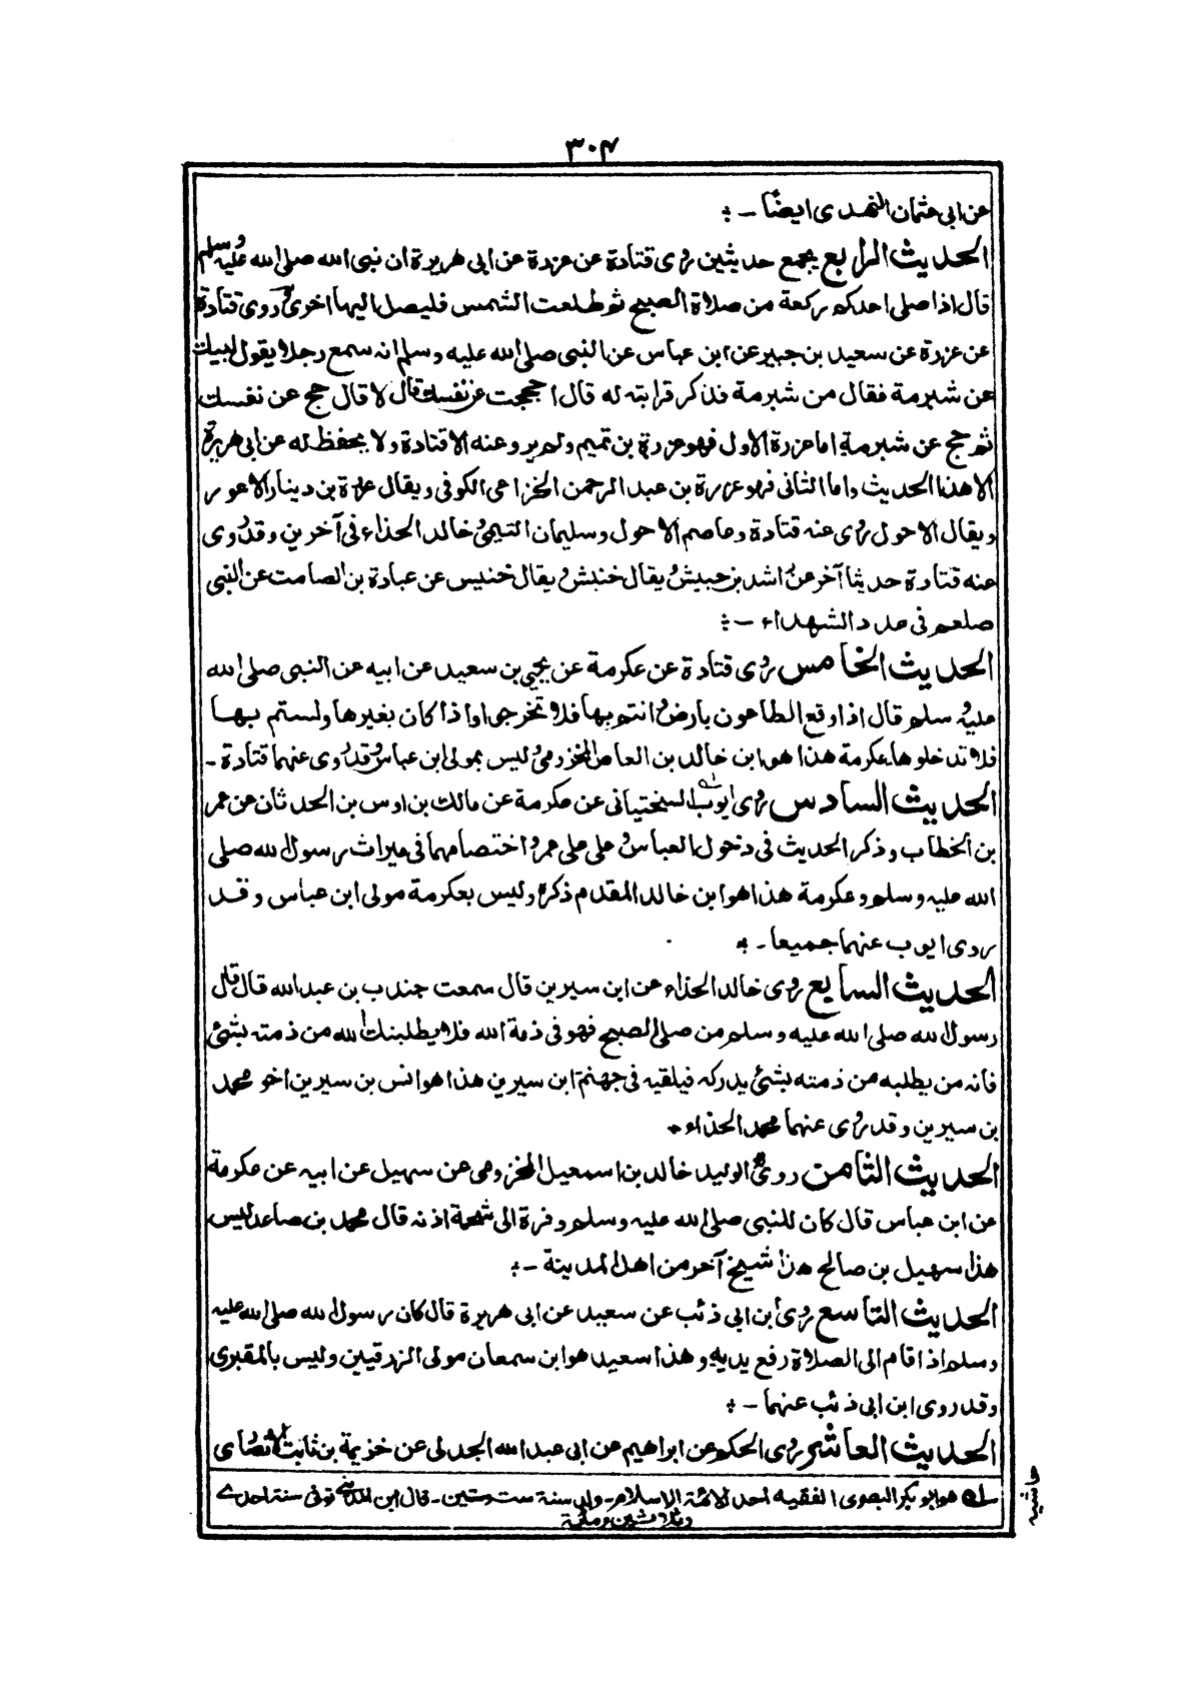 ٣٠٤
عن ابى عثمان النهدى ايضًا ـ :
الحديث الرابع يجمع حديثين روى قتادة عن عزرة عن ابى هريرة ان نبى الله صلى الله عليه وسلم
قال اذا صلى احدكم ركعة من صلاة الصبح ثم طلعت الشمس فليصل اليها اخرى وروى قتادة
عن عزرة عن سعيد بن جبير عن ابن عباس عن النبى صلى الله عليه وسلم انه سمع رجلا يقول لبيك
عن شبرمة فقال من شبرمة فذكر قرابته له قال احججت عن نفسك قال لا قال حج عن نفسك
ثم حج عن شبرمة اما عزرة الاول فهو عزرة بن تميم ولم يرو عنه الا قتادة ولا يحفظ له عن ابى هريرة
الا هذا الحديث واما الثانى فهو عزرة بن عبد الرحمن الخزاعى الكوفى ويقال عزرة بن دينار الاعور
ويقال الاحول روى عنه قتادة وعاصم الاحول وسليمان التيمى وخالد الحذاء فى آخرين وقد روى
عنه قتادة حديثا آخر عن راشد بن حبيش ويقال خنبش ويقال خنيس عن عبادة بن الصامت عن النبى
صلعم فى عدد الشهداء ـ :
الحديث الخامس روى قتادة عن عكرمة عن يحيى بن سعيد عن ابيه عن النبى صلى الله
عليه وسلم قال اذا وقع الطاعون بارض وانتم بها فلا تخرجوا واذا كان بغيرها ولستم بها
فلا تدخلوها عكرمة هذا هو ابن خالد بن العاص المخزومى وليس بمولى ابن عباس وقد روى عنهما قتادة ـ
الحديث السادس روى ايوب السختيانى عن عكرمة عن مالك بن اوس بن الحدثان عن عمر
بن الخطاب وذكر الحديث فى دخول العباس وعلى على عمر واختصامهما فى ميراث رسول الله صلى
الله عليه وسلم وعكرمة هذا هو ابن خالد المقدم ذكره وليس بعكرمة مولى ابن عباس وقد
روى ايوب عنهما جميعا ـ :
الحديث السابع روى خالد الحذاء عن ابن سيرين قال سمعت جندب بن عبد الله قال قال
رسول الله صلى الله عليه وسلم من صلى الصبح فهو فى ذمة الله فلا يطلبنك الله من ذمته بشئ
فانه من يطلبه من ذمته بشئ يدركه فيلقيه فى جهنم ابن سيرين هذا هو انس بن سيرين اخو محمد
بن سيرين وقد روى عنهما محمد الحذاء ٠
الحديث الثامن روى ابو الوليد خالد بن اسمعيل المخزومى عن سهيل عن ابيه عن عكرمة
عن ابن عباس قال كان للنبى صلى الله عليه وسلم وفرة الى شحمة اذنه قال محمد بن صاعد ليس
هذا سهيل بن صالح هذا شيخ آخر من اهل المدينة ـ :
الحديث التاسع روى ابن ابى ذئب عن سعيد عن ابى هريرة قال كان رسول الله صلى الله عليه
وسلم اذا قام الى الصلاة رفع يديه وهذا سعيد هو ابن سمعان مولى الزرقيين وليس بالمقبرى
وقد روى ابن ابى ذئب عنهما ـ :
الحديث العاشر روى الحكم عن ابراهيم عن ابى عبد الله الجدلى عن خزيمة بن ثابت الانصارى
له هو ابو بكر البصرى الفقيه احد الائمة الاسلام ـ ولد سنة ست وستين ـ قال ابن المدينى توفى سنة احدى
وثلاثين ومائة
حاشيه